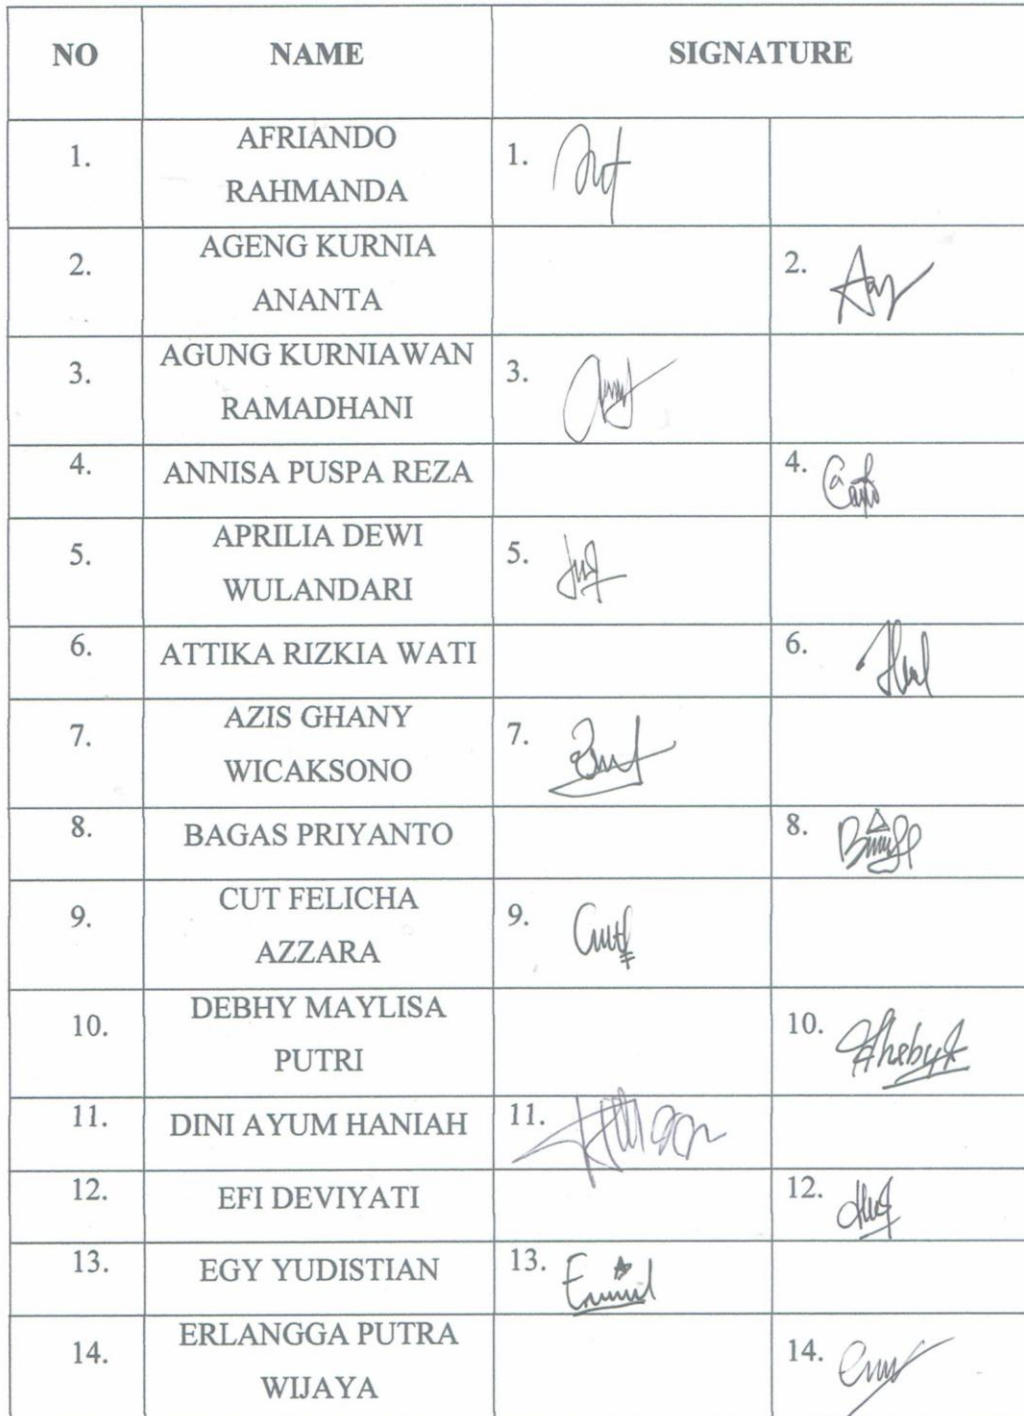 NO NAME SIGNATURE
1. AFRIANDO RAHMANDA 1.
2. AGENG KURNIA ANANTA 2.
3. AGUNG KURNIAWAN RAMADHANI 3.
4. ANNISA PUSPA REZA 4.
5. APRILIA DEWI WULANDARI 5.
6. ATTIKA RIZKIA WATI 6.
7. AZIS GHANY WICAKSONO 7.
8. BAGAS PRIYANTO 8.
9. CUT FELICHA AZZARA 9.
10. DEBHY MAYLISA PUTRI 10.
11. DINI AYUM HANIAH 11.
12. EFI DEVIYATI 12.
13. EGY YUDISTIAN 13.
14. ERLANGGA PUTRA WIJAYA 14.